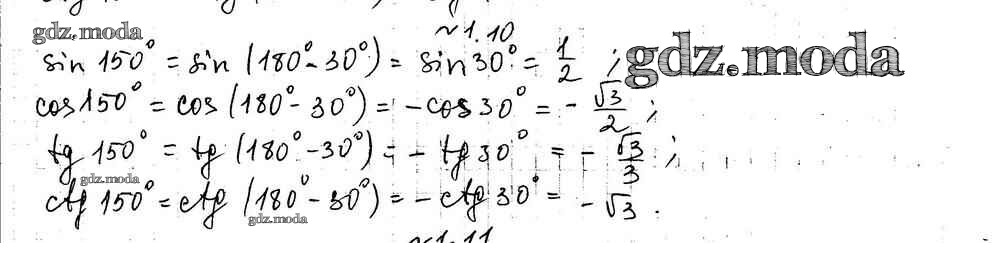 №1.10
gdz.moda
sin 150° = sin (180° - 30°) = sin 30° = 1/2 ; gdz.moda
cos 150° = cos (180° - 30°) = - cos 30° = - √3/2 ;
tg 150° = tg (180° - 30°) = - tg 30° = - √3/3 ;
gdz.moda
ctg 150° = ctg (180° - 30°) = - ctg 30° = - √3 .
gdz.moda
№1.11